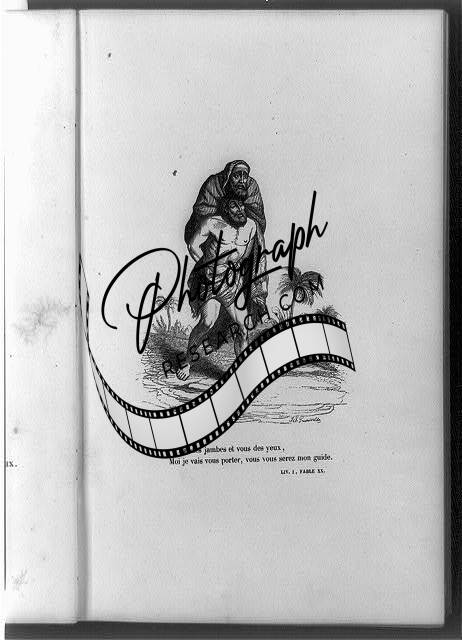 Photograph
RESEARCH.COM
jambes et vous des yeux,
Moi je vais vous porter, vous vous serez mon guide.
LIV. I, FABLE XX.
IX.